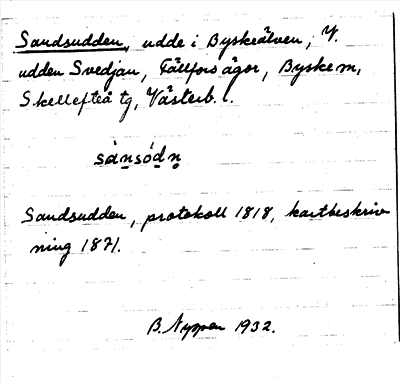 Sandsudden, udde i Byskeälven, V.
udden Svedjan, Fällfors ägor, Byske m,
Skellefteå tg, Västerb. l.
sànsódn̥
Sandsudden, protokoll 1818, kartbeskriv-
ning 1871.
B. Nyman 1932.